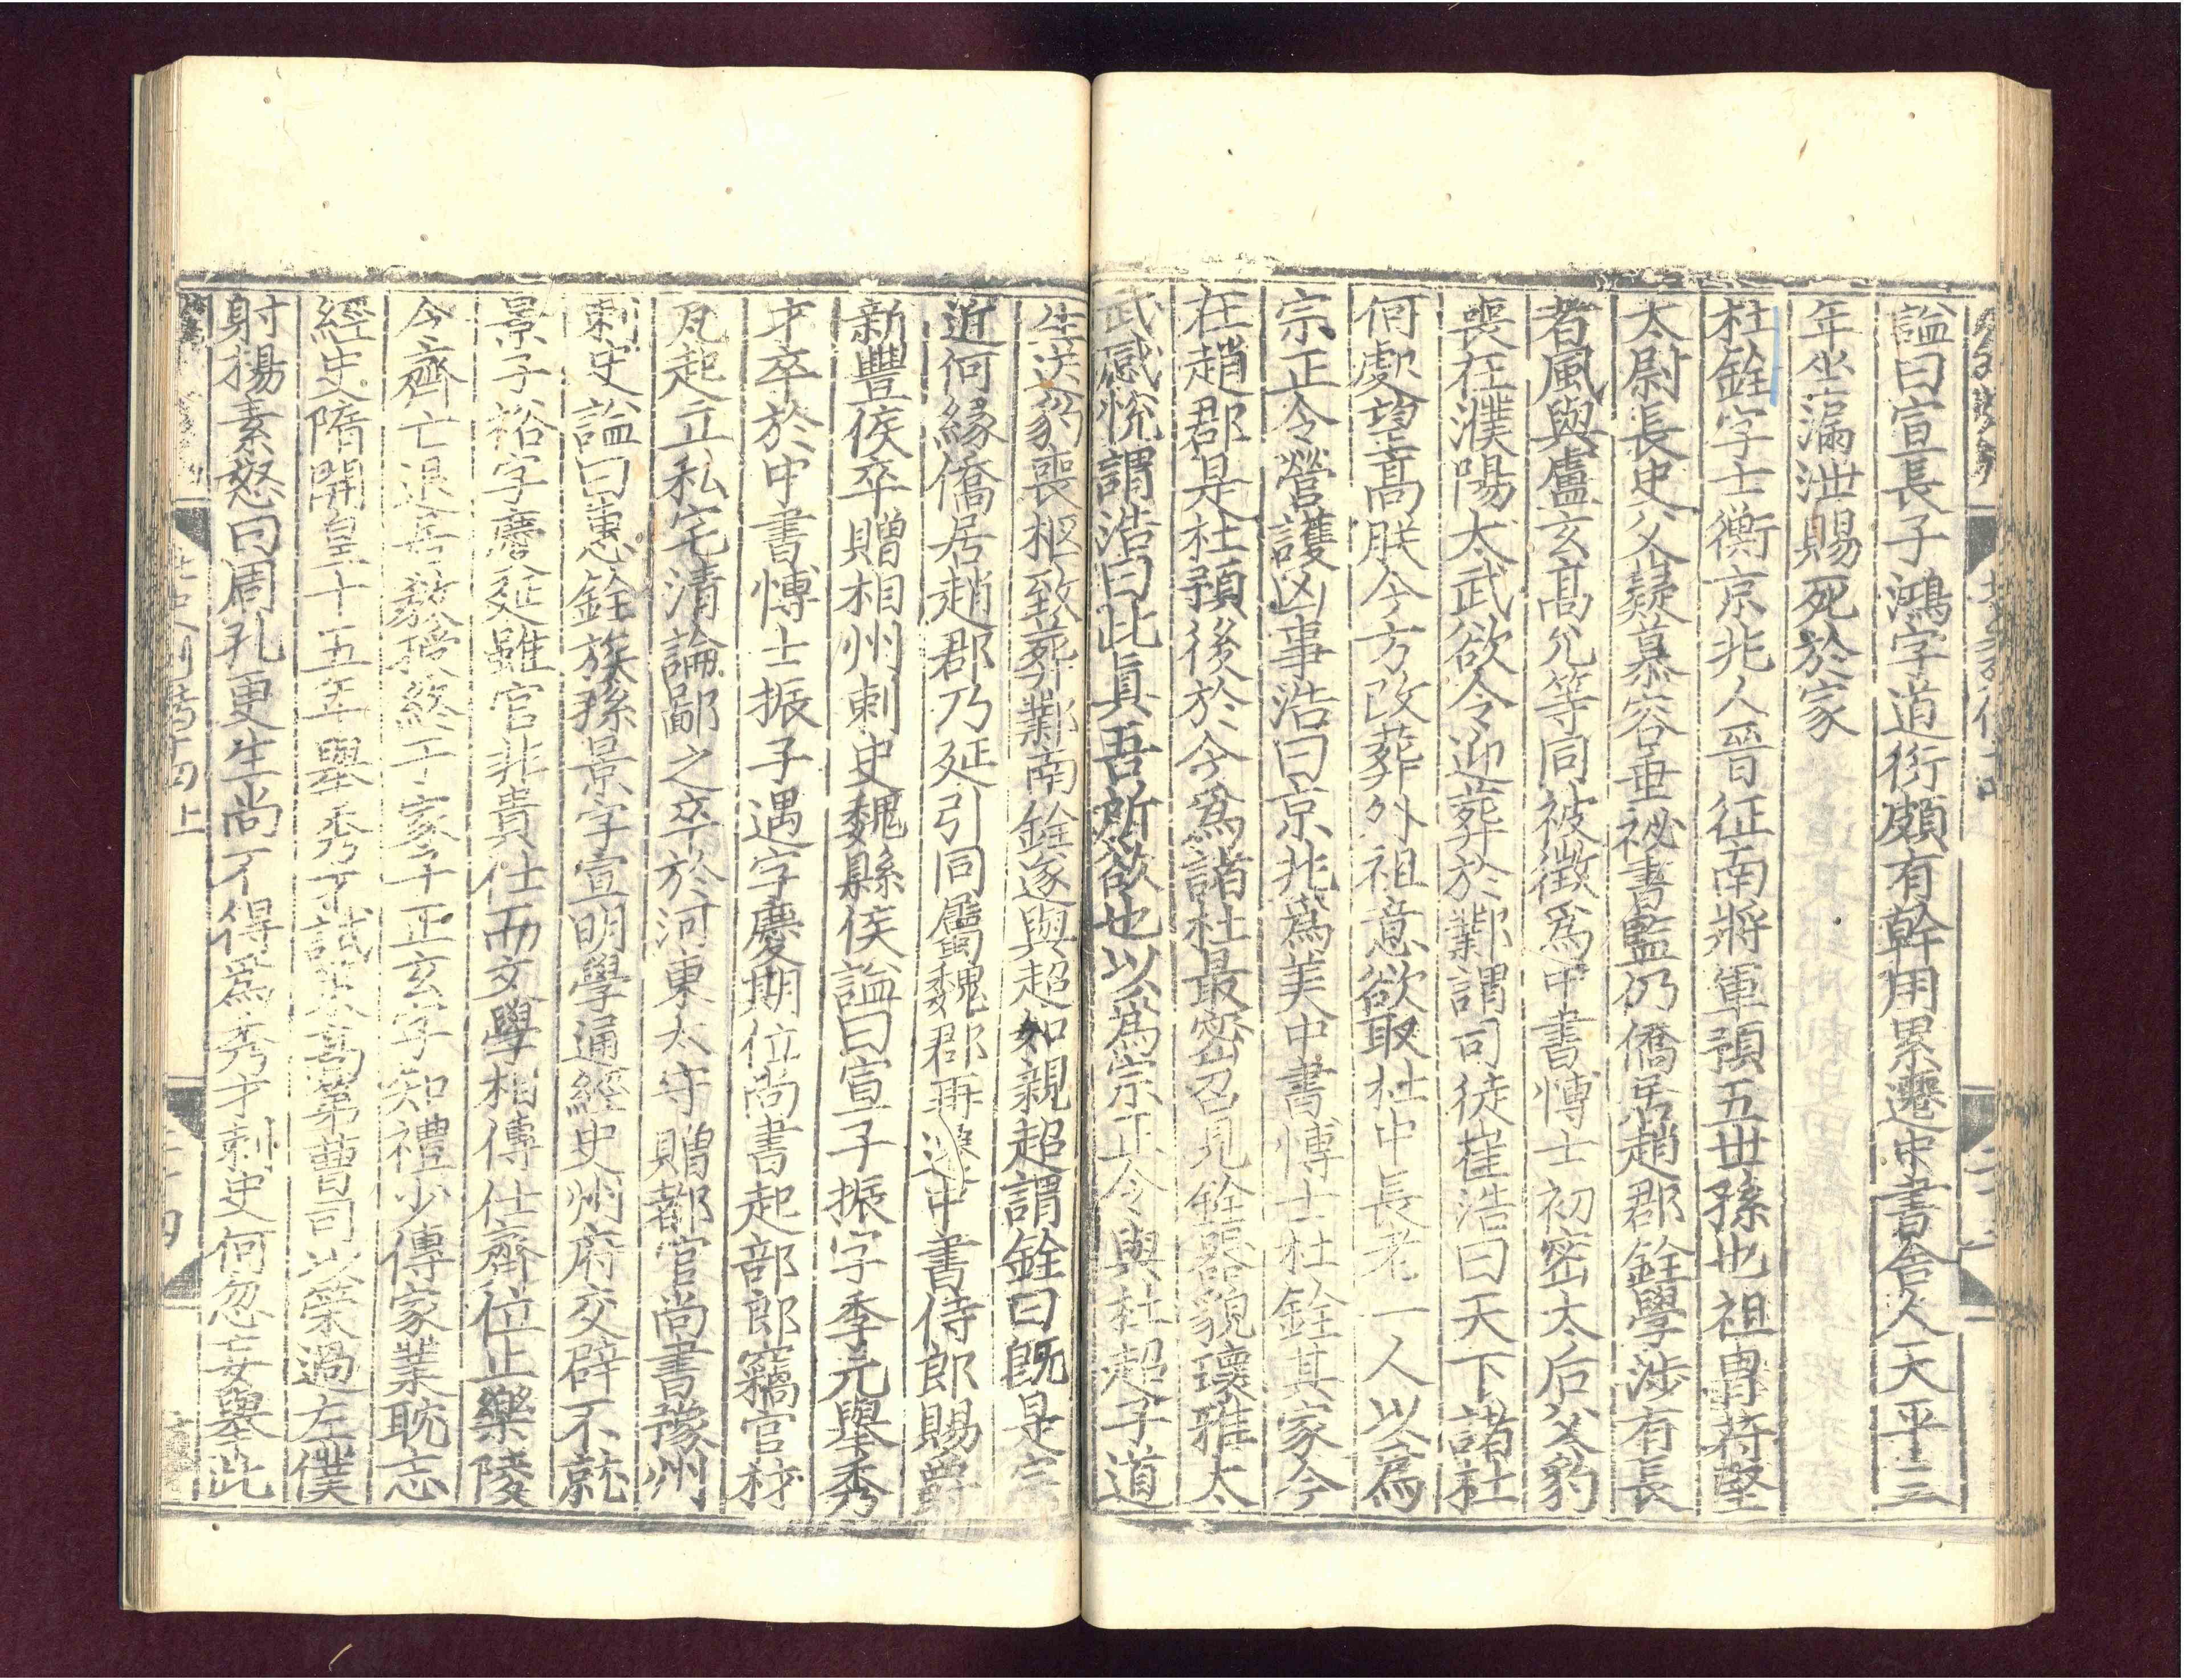 謚曰宣長子鴻字道衍頗有幹用累遷中書舍人天平三
年坐漏泄賜死於家
杜銓字士衡京兆人晉征南將軍預五世孫也祖冑苻堅
太尉長史父嶷慕容垂祕書監仍僑居趙郡銓學涉有長
者風與盧玄高允等同被徵爲中書博士初密太后父豹
喪在濮陽太武欲令迎葬於鄴謂司徒崔浩曰天下諸杜
何處望高朕今方改葬外祖意欲取杜中長老一人以爲
宗正令營護凶事浩曰京兆爲美中書博士杜銓其家今
在趙郡是杜預後於今爲諸杜最密召見銓器貌瓌雅太
武感悅謂浩曰此眞吾所欲也以爲宗正令與杜超子道
生送豹喪柩致葬鄴南銓遂與超如親超謂銓曰旣是宗
近何緣僑居趙郡乃延引同屬魏郡再遷中書侍郎賜爵
新豐侯卒贈相州刺史魏縣侯謚曰宣子振字季元舉秀
才卒於中書博士振子遇字慶期位尚書起部郎竊官材
瓦起立私宅清論鄙之卒於河東太守贈都官尚書豫州
刺史謚曰惠銓族孫景字宣明學通經史州府交辟不就
景子裕字慶延雖官非貴仕而文學相傳仕齊位止樂陵
令齊亡退居教授終于家子正玄字知禮少傳家業耽志
經史隋開皇十五年舉秀才試策高第曹司以策過左僕
射楊素怒曰周孔更生尚不得爲秀才刺史何忽妄舉此
北史列傳十四上